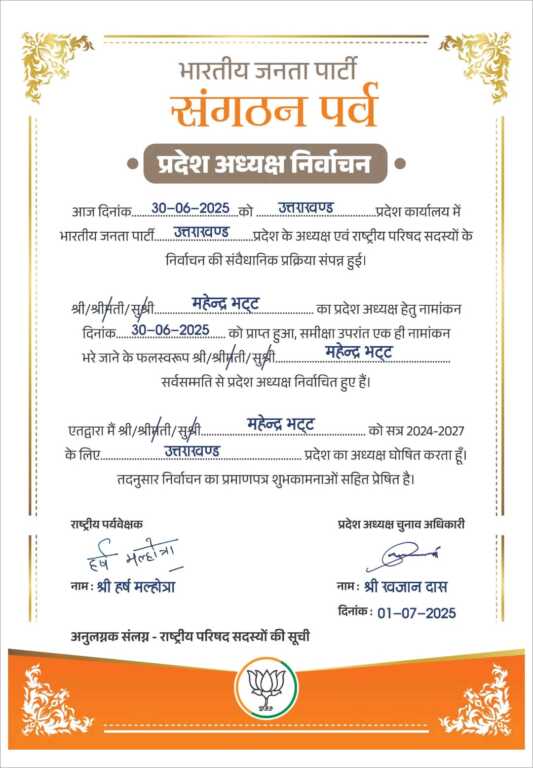 भारतीय जनता पार्टी
संगठन पर्व
प्रदेश अध्यक्ष निर्वाचन
आज दिनांक....30-06-2025...को .....उत्तराखण्ड..........प्रदेश कार्यालय में
भारतीय जनता पार्टी....उत्तराखण्ड......प्रदेश के अध्यक्ष एवं राष्ट्रीय परिषद सदस्यों के
निर्वाचन की संवैधानिक प्रक्रिया संपन्न हुई।
श्री/श्रीमती/सुश्री..........महेन्द्र भट्ट............... का प्रदेश अध्यक्ष हेतु नामांकन
दिनांक....30-06-2025.... को प्राप्त हुआ, समीक्षा उपरांत एक ही नामांकन
भरे जाने के फलस्वरूप श्री/श्रीमती/सुश्री.............महेन्द्र भट्ट...............
सर्वसम्मति से प्रदेश अध्यक्ष निर्वाचित हुए हैं।
एतद्वारा मैं श्री/श्रीमती/सुश्री...........महेन्द्र भट्ट............. को सत्र 2024-2027
के लिए.................उत्तराखण्ड..................... प्रदेश का अध्यक्ष घोषित करता हूँ।
तदनुसार निर्वाचन का प्रमाणपत्र शुभकामनाओं सहित प्रेषित है।
राष्ट्रीय पर्यवेक्षक
प्रदेश अध्यक्ष चुनाव अधिकारी
हर्ष मल्होत्रा
नाम : श्री हर्ष मल्होत्रा
नाम : श्री खजान दास
दिनांक : 01-07-2025
अनुलग्नक संलग्न - राष्ट्रीय परिषद सदस्यों की सूची